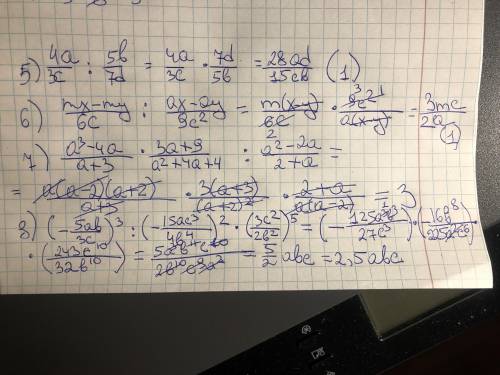 5) 4a/3c : 5b/7d = 4a/3c · 7d/5b = 28ad/15cb (1)
6) mx-my/6c : ax-ay/9c² = m(x-y)/6c 2 · 3 9c² 1/a(x-y) = 3mc/2a (1)
7) a³-4a/a+3 · 3a+9/a²+4a+4 : a²-2a/2+a =
= a(a-2)(a+2)/a+3 · 3(a+3)/(a+2)² · 2+a/a(a-2) = 3
8) (-5ab/3c)³ : (-15ac³/4b⁴)² · (3c²/2b²)⁵ = (-125a³b³/27c³) · (16b⁸/225a²c⁶)
· (243c¹⁰/32b¹⁰) = = 5/2 abc = 2,5abc